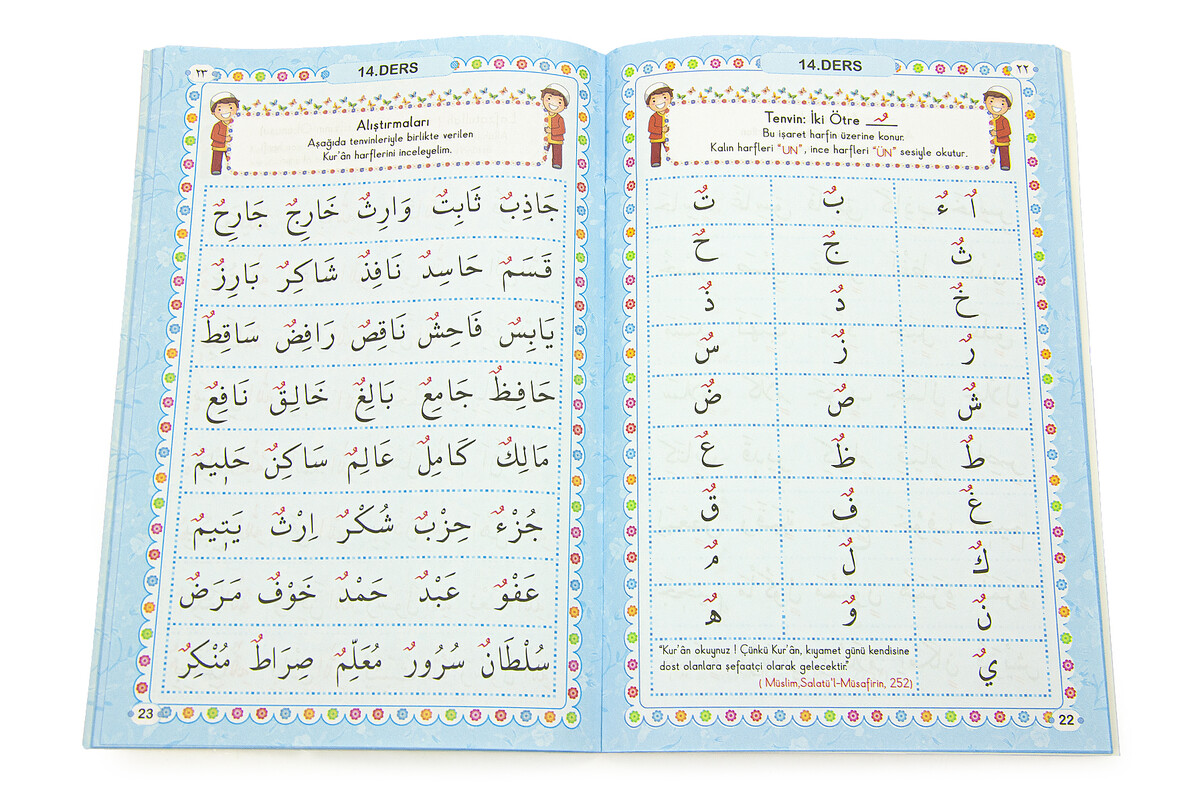 ٢٢
14.DERS
Tenvin: İki Ötre ـٌـ
Bu işaret harfin üzerine konur.
Kalın harfleri "UN", ince harfleri "ÜN" sesiyle okutur.
اٌ ءٌ بٌ تٌ
ثٌ جٌ حٌ
خٌ دٌ ذٌ
رٌ زٌ سٌ
شٌ صٌ ضٌ
طٌ ظٌ عٌ
غٌ فٌ قٌ
كٌ لٌ مٌ
نٌ وٌ هٌ
يٌ
"Kur'ân okuynuz ! Çünkü Kur'ân, kıyamet günü kendisine
dost olanlara şefaatçi olarak gelecektir."
( Müslim,Salatü'l-Müsafirin, 252)
22
٢٣
14.DERS
Alıştırmaları
Aşağıda tenvinleriyle birlikte verilen
Kur'ân harflerini inceleyelim.
جَاذِبٌ ثَابِتٌ وَارِثٌ خَارِجٌ جَارِحٌ
قَسَمٌ حَاسِدٌ نَافِذٌ شَاكِرٌ بَارِزٌ
يَابِسٌ فَاحِشٌ نَاقِصٌ رَافِضٌ سَاقِطٌ
حَافِظٌ جَامِعٌ بَالِغٌ خَالِقٌ نَافِعٌ
مَالِكٌ كَامِلٌ عَالِمٌ سَاكِنٌ حَلِيمٌ
جُزْءٌ حِزْبٌ شُكْرٌ اِرْثٌ يَتِيمٌ
عَفْوٌ عَبْدٌ حَمْدٌ خَوْفٌ مَرَضٌ
سُلْطَانٌ سُرُورٌ مُعَلِّمٌ صِرَاطٌ مُنْكِرٌ
23